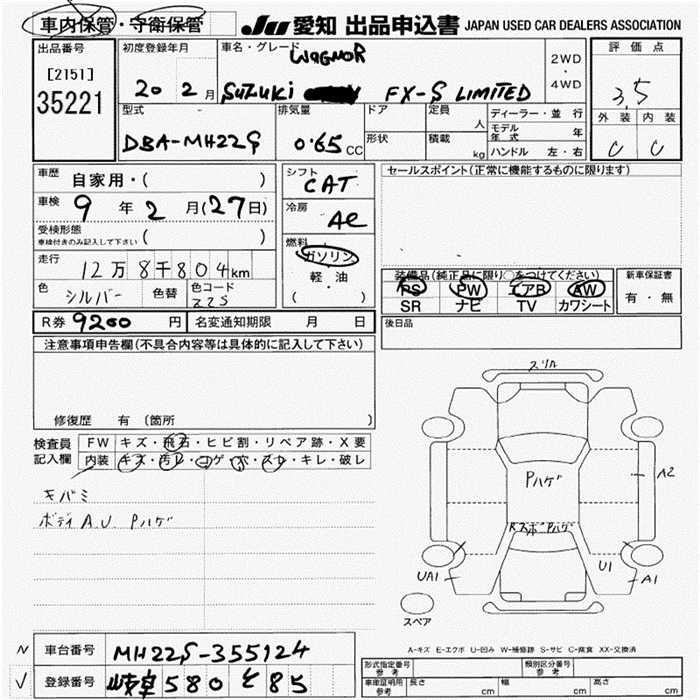 車内保管・守衛保管
JU 愛知 出品申込書 JAPAN USED CAR DEALERS ASSOCIATION
出品番号
[2151]
35221
初度登録年月
20 2月
車名・グレード
WAGNOR
SUZUKI FX-S LIMITED
2WD
・
4WD
評価点
3.5
外装 内装
C C
型式
DBA-MH22S
排気量
0.65 CC
ドア
形状
定員
人
積載
kg
ディーラー・並行
モデル年式 年
ハンドル 左・右
車歴
自家用・( )
車検
9年2月(27日)
受検形態
車検付きのみ記入して下さい ( )
走行
12万8千804km
色 シルバー 色替 色コード
Z2S
シフト
CAT
冷房
AC
燃料
ガソリン
軽・油
( )
セールスポイント(正常に機能するものに限ります)
装備品(純正品に限り○をつけてください)
PS PW エアB AW
SR ナビ TV カワシート
新車保証書
有・無
R券 9200円 名変通知期限 月 日
後日品
注意事項申告欄(不具合内容等は具体的に記入して下さい)
修復歴 有 (箇所 )
検査員
記入欄
FW キズ・飛石・ヒビ割・リペア跡・X要
内装 キズ・汚レ・コゲ・穴・スレ・キレ・破レ
キバミ
ボディA.U. Pハゲ
スリル
Pハゲ
A2
UA1
U1
A1
スペア
A-キズ E-エクボ U-凹み W-補修跡 S-サビ C-腐食 XX-交換済
車台番号 MH22S-355124
登録番号 岐阜 580 と 85
形式指定番号
参考
類別区分番号
参考
車庫証明用
参考
長さ cm
幅 cm
高さ cm